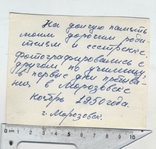 На долгую память
моим дорогим роди-
телям и сестрёнке.
Фотографировались с
другом по училищу,
в первые дни
в Морозовске
1950 года.
г. Морозовск.